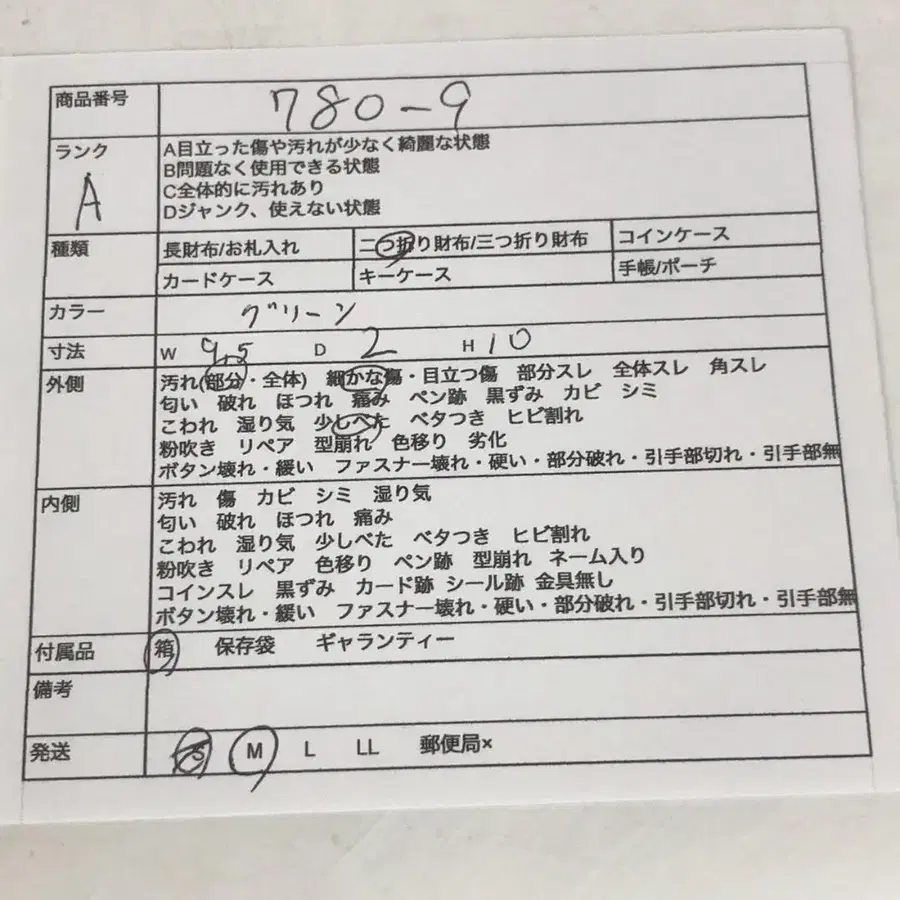 商品番号 780-9
ランク A
A目立った傷や汚れが少なく綺麗な状態
B問題なく使用できる状態
C全体的に汚れあり
Dジャンク、使えない状態
種類 長財布/お札入れ 二つ折り財布/三つ折り財布 コインケース
カードケース キーケース 手帳/ポーチ
カラー グリーン
寸法 W 9.5 D 2 H 10
外側 汚れ(部分・全体) 細かな傷・目立つ傷 部分スレ 全体スレ 角スレ
匂い 破れ ほつれ 痛み ペン跡 黒ずみ カビ シミ
こわれ 湿り気 少しべた ベタつき ヒビ割れ
粉吹き リペア 型崩れ 色移り 劣化
ボタン壊れ・緩い ファスナー壊れ・硬い・部分破れ・引手部切れ・引手部無
内側 汚れ 傷 カビ シミ 湿り気
匂い 破れ ほつれ 痛み
こわれ 湿り気 少しべた ベタつき ヒビ割れ
粉吹き リペア 色移り ペン跡 型崩れ ネーム入り
コインスレ 黒ずみ カード跡 シール跡 金具無し
ボタン壊れ・緩い ファスナー壊れ・硬い・部分破れ・引手部切れ・引手部無
付属品 箱 保存袋 ギャランティー
備考
発送 S M L LL 郵便局×